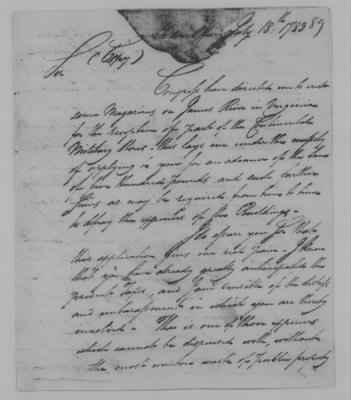 (Copy) War Office July 18th 1783 89
Sir
Congress have directed me to erect
some Magazines on James River in Virginia
for the reception of parts of the Continental
Military Stores. This lays me under the necessity
of applying to you for an advance of the sum
of five hundred pounds and such further
sums as may be required from time to time
to defray the expences of the Buildings.
I assure you Sir that
this application gives me pain. I know
that you have already greatly anticipated the
present Taxes, and am sensible of the distress
and embarrassment in which you are thereby
involved. This is one of those expences
which cannot be dispensed with, without
the most wanton waste of publick property